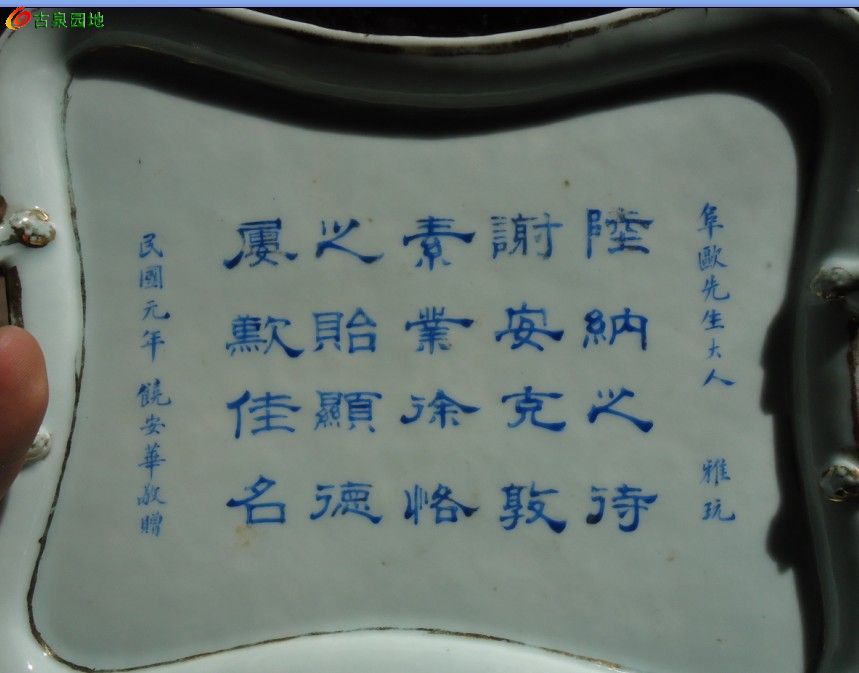 古泉园地
阜歐先生大人 雅玩
陸納之待
謝安克敦
素業徐恪
之貽顯德
屢歎佳名
民國元年 饒安華敬贈